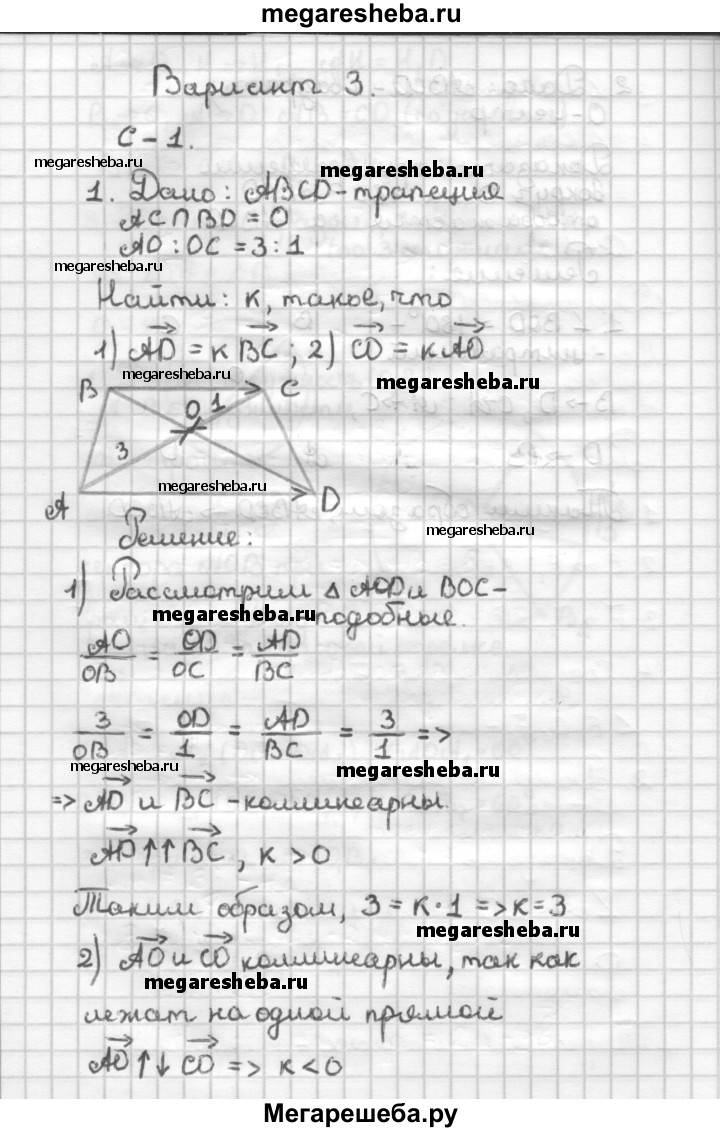 megaresheba.ru
Вариант 3.
С-1.
megaresheba.ru
megaresheba.ru
1. Дано: ABCD-трапеция
AC∩BD=O
AO:OC=3:1
megaresheba.ru
Найти: к, такое, что
1) AD→ = к BC→; 2) CO→ = к AO→
megaresheba.ru
megaresheba.ru
B C
O 1
3
megaresheba.ru
A D
megaresheba.ru
Решение:
1) Рассмотрим Δ AOD и BOC-
megaresheba.ru
-подобные.
AO/OB = OD/OC = AD/BC
3/OB = OD/1 = AD/BC = 3/1 =>
megaresheba.ru
megaresheba.ru
=> AD→ и BC→ -коллинеарны.
AD→ ↑↑ BC→, к > 0
Таким образом, 3 = к·1 => к=3
megaresheba.ru
2) AO→ и CO→ коллинеарны, так как
megaresheba.ru
лежат на одной прямой
AO→ ↑↓ CO→ => к<0
Мегарешеба.ру